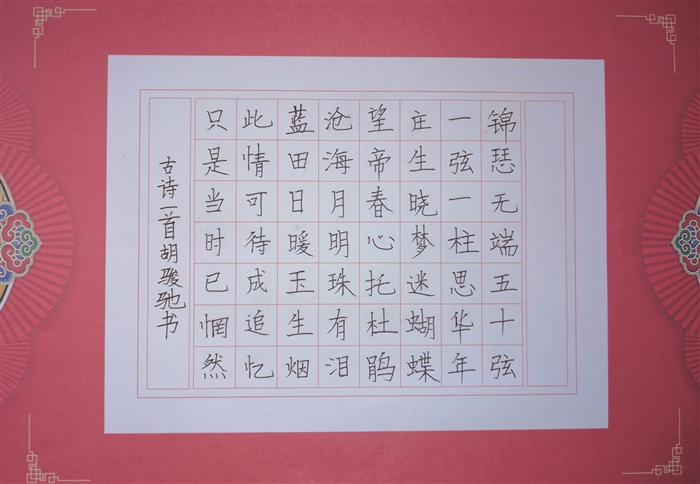 锦瑟无端五十弦
一弦一柱思华年
庄生晓梦迷蝴蝶
望帝春心托杜鹃
沧海月明珠有泪
蓝田日暖玉生烟
此情可待成追忆
只是当时已惘然
古诗一首胡骏驰书